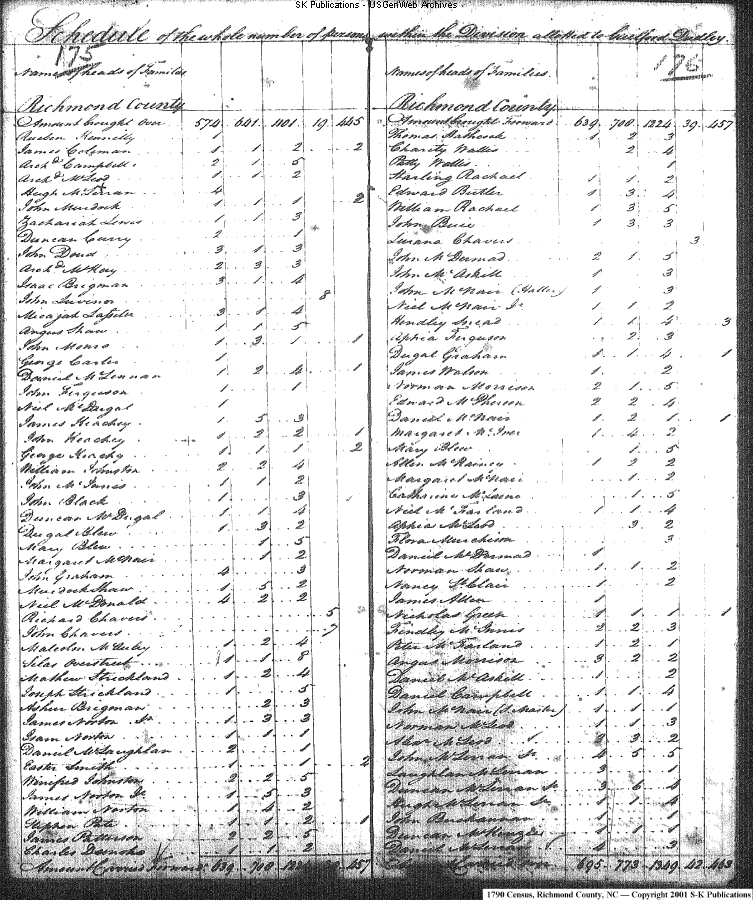 SK Publications - USGenWeb Archives
Schedule of the whole number of persons within the Division allotted to Guilford Dudley.
175
Names of heads of Families
Richmond County
Amount brought over 574 641 1101 19 445
Reuben Kennelly 1
James Coleman 1 1 2 2
Archd Campbell 2 1 5
Archd McLeod 1 1 2
Hugh 4
John Murdock 1 1 1 2
Zachariah Lewis 1 1 3
Duncan Curry 2 1
John Doud 3 1 3
Archd McKay 2 3 3
Isaac Brigman 3 1 4
John 8
Micajah Lassiter 3 1 4
Angus Shaw 1 1 5
John Monro 1 3 1 1
George Carter 1
Daniel McLennan 1 2 4 1
John Ferguson 1 1
Niel McDugal 1
James Keachey 1 5 3
John Keachey 1 2 2 1
George Keachy 1 1 1 2
William Johnston 2 2 4
John McInnes 1 1 2
John Black 1 3
Duncan McDugal 1 1 4
Dugal Blew 1 3 2
Mary Blew 1 5
Margaret McNair 1 2
John Graham 4 3
Murdock Shaw 1 5 2
Niel McDonald 4 2 2
Richard Chavers 5
John Chavers 7
Malcolm 1 2 4
Silas Overstreet 1 1 8
Mathew Strickland 1 2 4
Joseph Strickland 1 5
Asher Brigman 2 3
James Norton Sr 1 3 3
Isam Norton 1 1 1
Daniel McLaughlan 2 1
Easter Smith 1 1 2
Winifred Johnston 2 2 5
James Norton Jr 1 5 3
William Norton 1 4 2
Stephen Pate 1 1 2 1
James Patterson 2 2 5
Charles 1 1 2
Amount Carried Forward 639 700 1224 457
176
Names of heads of Families
Richmond County
Amount brought Forward 639 700 1224 39 457
Thomas 1 2 3
Charity Wallis 2 4
Patty Wallis 1
Starling Rachael 1 1 2
Edward Butler 1 3 4
William Rachael 1 3 5
John Buie 1 3 3
Lurana Chavers 3
John McDermad 2 1 5
John McAskill 1 3
John McNair (Hatter) 1 3
Niel McNair Jr 1 1 2
Hendley Snead 1 1 4 3
Aphia Ferguson 2 3
Dugal Graham 1 1 4 1
James Watson 1 2
Norman Morrison 2 1 5
Edward McPherson 2 2 4
Daniel McNair 1 2 1 1
Margaret McIver 1 4 2
Mary Blew 1 5
Allen McRainey 1 2 2
Margaret McNair 1 2
Catharine 1 5
Niel McFarland 1 1 4
Aphia McLeod 3 2
Flora Murchison 3
Daniel McDermad 1
Norman Shaw 1 1 2
Nancy St Clair 1 2
James Allen 1
Nicholas Green 1 1 1 1
Findley McInnis 2 2 3
Peter McFarland 1 2 1
Angus Morrison 3 2 2
Daniel McAskill 1 2
Daniel Campbell 1 1 4
John McNair (S. Master) 1 1 1
Norman McLeod 1 1 3
Alexr McLeod 3 3 2
John McLenan Sr 4 5 5
Laughlan McLenan 3 1
Duncan McLenan Sr 3 6 4
Hugh McLenan Sr 1 1 4
John Buchannan 1 1
Duncan McKenzie 1 1 1
Daniel 4 3
Amount Carried over 695 773 1349 42 463
1790 Census, Richmond County, NC — Copyright 2001 S-K Publications